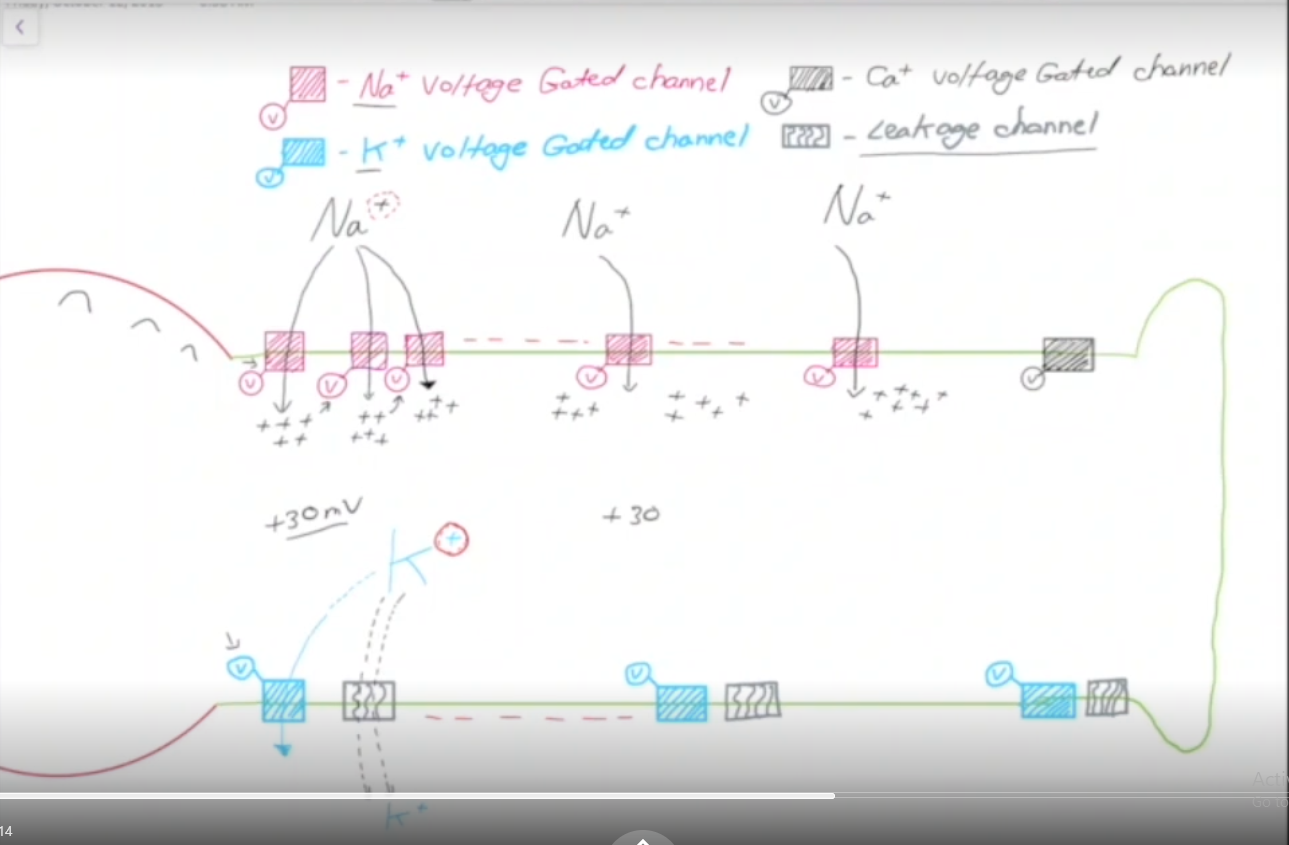 - Na+ voltage Gated channel
- Ca+ voltage Gated channel
V
V
- K+ voltage Gated channel
- Leakage channel
V
Na+
Na+
Na+
V
V
V
V
V
V
+ + +
+ +
+ +
+ + +
+ +
+ +
+
+ + +
+ + + +
+ + + +
+ + +
+30mV
+30
K+
V
V
V
K+
14